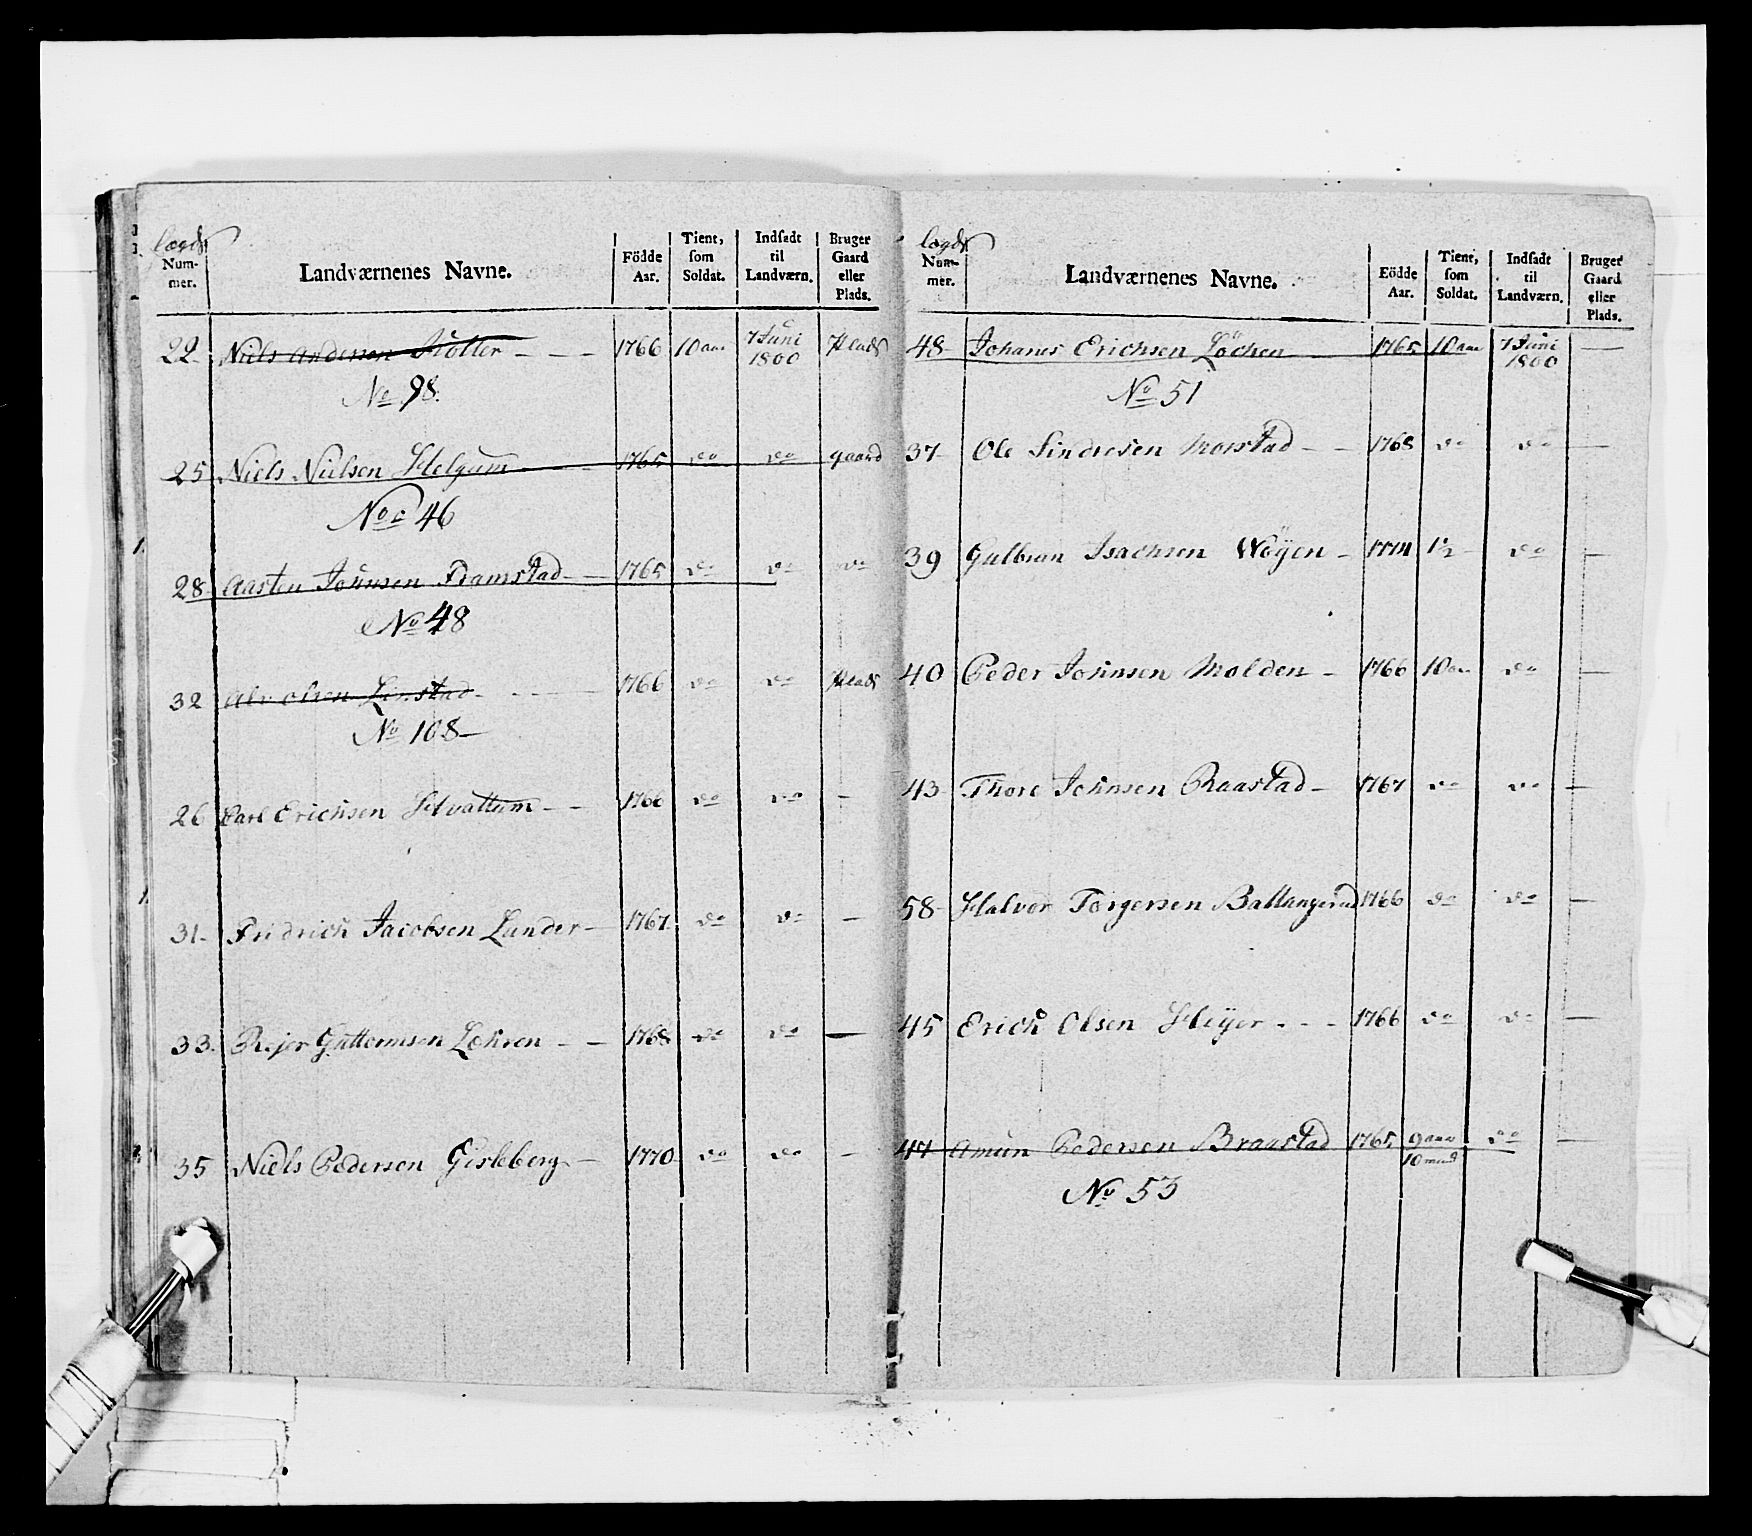 lægds
Num-
mer.
Landværnenes Navne.
Födde
Aar.
Tient,
som
Soldat.
Indsadt
til
Landværn.
Bruger
Gaard
eller
Plads.
22 Niels Andersen - - - 1766 10 aar 7 Juni 1800 Plads
No 98.
25 Niels Nielsen Helgum 1765 do do gaard
No 46
28 Aasten Johnsen Framstad - - 1765 do do do
No 48
32 Alv Olsen Linstad - - - - 1766 do do Plads
No 108 -
26 Carl Erichsen Hvattum - - 1766 do do -
31. Fridrich Jacobsen Lunder - 1767. do do -
33. Rejer Guttormsen Løhren - - 1768 do do -
35 Niels Pedersen Gisleberg - 1770 do do -
lægds
Num-
mer.
Landværnenes Navne.
Eödde
Aar.
Tient,
som
Soldat.
Indsadt
til
Landværn.
Bruger
Gaard
eller
Plads.
48 Johanes Erichsen Löchen 1765 10 aar 7 Juni 1800 -
No 51
37 Ole Sindresen Morstad - - 1768 do do -
39 Gulbran Isachsen Wöyen - 1771 1½ - do -
40 Peder Johnsen Molden - 1766 10 aar do -
43 Thore Johnsen Raastad - 1767 do do -
58 - Halvor Torgersen Ballangerud 1766 do do -
45 Erich Olsen Heÿer - - - 1766 do do -
47 Amun Pedersen Braastad 1765 9 aar 10 mnd do -
No 53